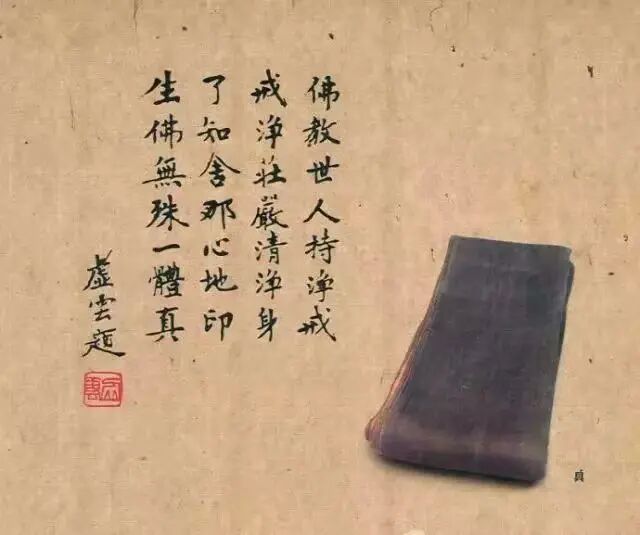 佛教世人持淨戒
戒淨莊嚴清淨身
了知舍那心地印
生佛無殊一體真
虛雲題
真